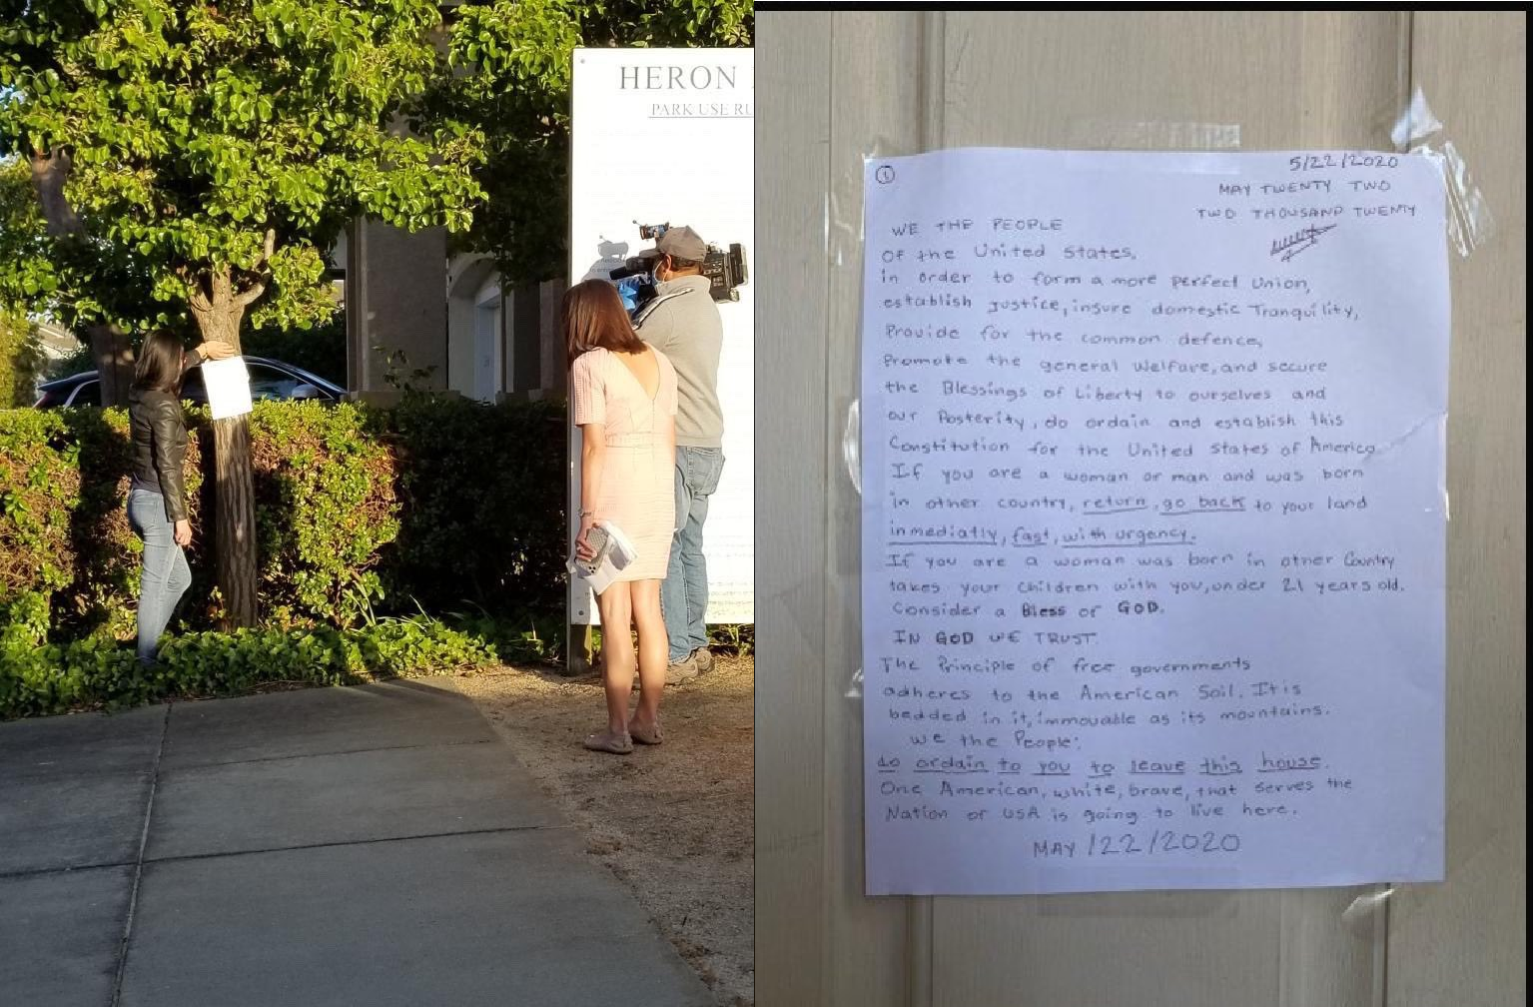 HERON
PARK USE RU
①
5/22/2020
MAY TWENTY TWO
TWO THOUSAND TWENTY
WE THE PEOPLE
OF the United States,
in order to form a more perfect Union,
establish justice, insure domestic Tranquility,
Provide for the common defence,
Promote the general Welfare, and secure
the Blessings of Liberty to ourselves and
our Posterity, do ordain and establish this
Constitution for the United States of America
If you are a woman or man and was born
in other country, return, go back to your land
inmediatly, fast, with urgency.
If you are a woman was born in other Country
takes your children with you, under 21 years old.
Consider a Bless of GOD.
IN GOD WE TRUST.
The Principle of free governments
adheres to the American Soil. It is
bedded in it, immovable as its mountains.
We the People:
do ordain to you to leave this house.
One American, white, brave, that serves the
Nation or USA is going to live here.
MAY /22/2020